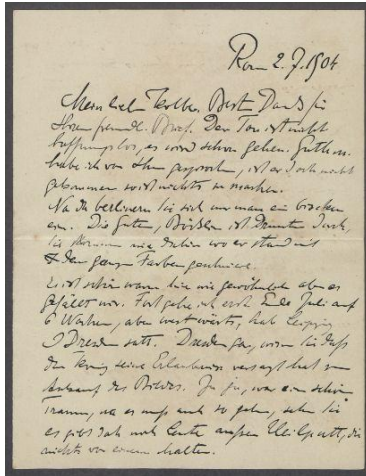 Rom 2.7.1904
Mein lieber Kolbe. Besten Dank für
Ihren freundl. Brief. Der Ton ist nicht
hoffnungslos, es wird schon gehen.
habe ich von Ihnen gesprochen, ist er doch nicht
gekommen so ist nichts zu machen.
Na da berlinern Sie sich nun man ein bischen
ein. Die Guten,
Sie kommen nie dahin wo er stand mit
den ganzen Farben
Es ist schön warm hier wie gewöhnlich aber es
gefällt mir. Fort gehe ich erst Ende Juli auf
6 Wochen, aber westwärts, hab Leipzig
Dresden satt. Dresden ja, wissen Sie daß
der König seine Erlaubnis versagt hat zum
Ankauf des Bildes. Ja ja, war ein schöner
Traum, na es muß auch so gehen, sehn Sie
es gibt doch noch Leute außer die
nichts von einem halten.